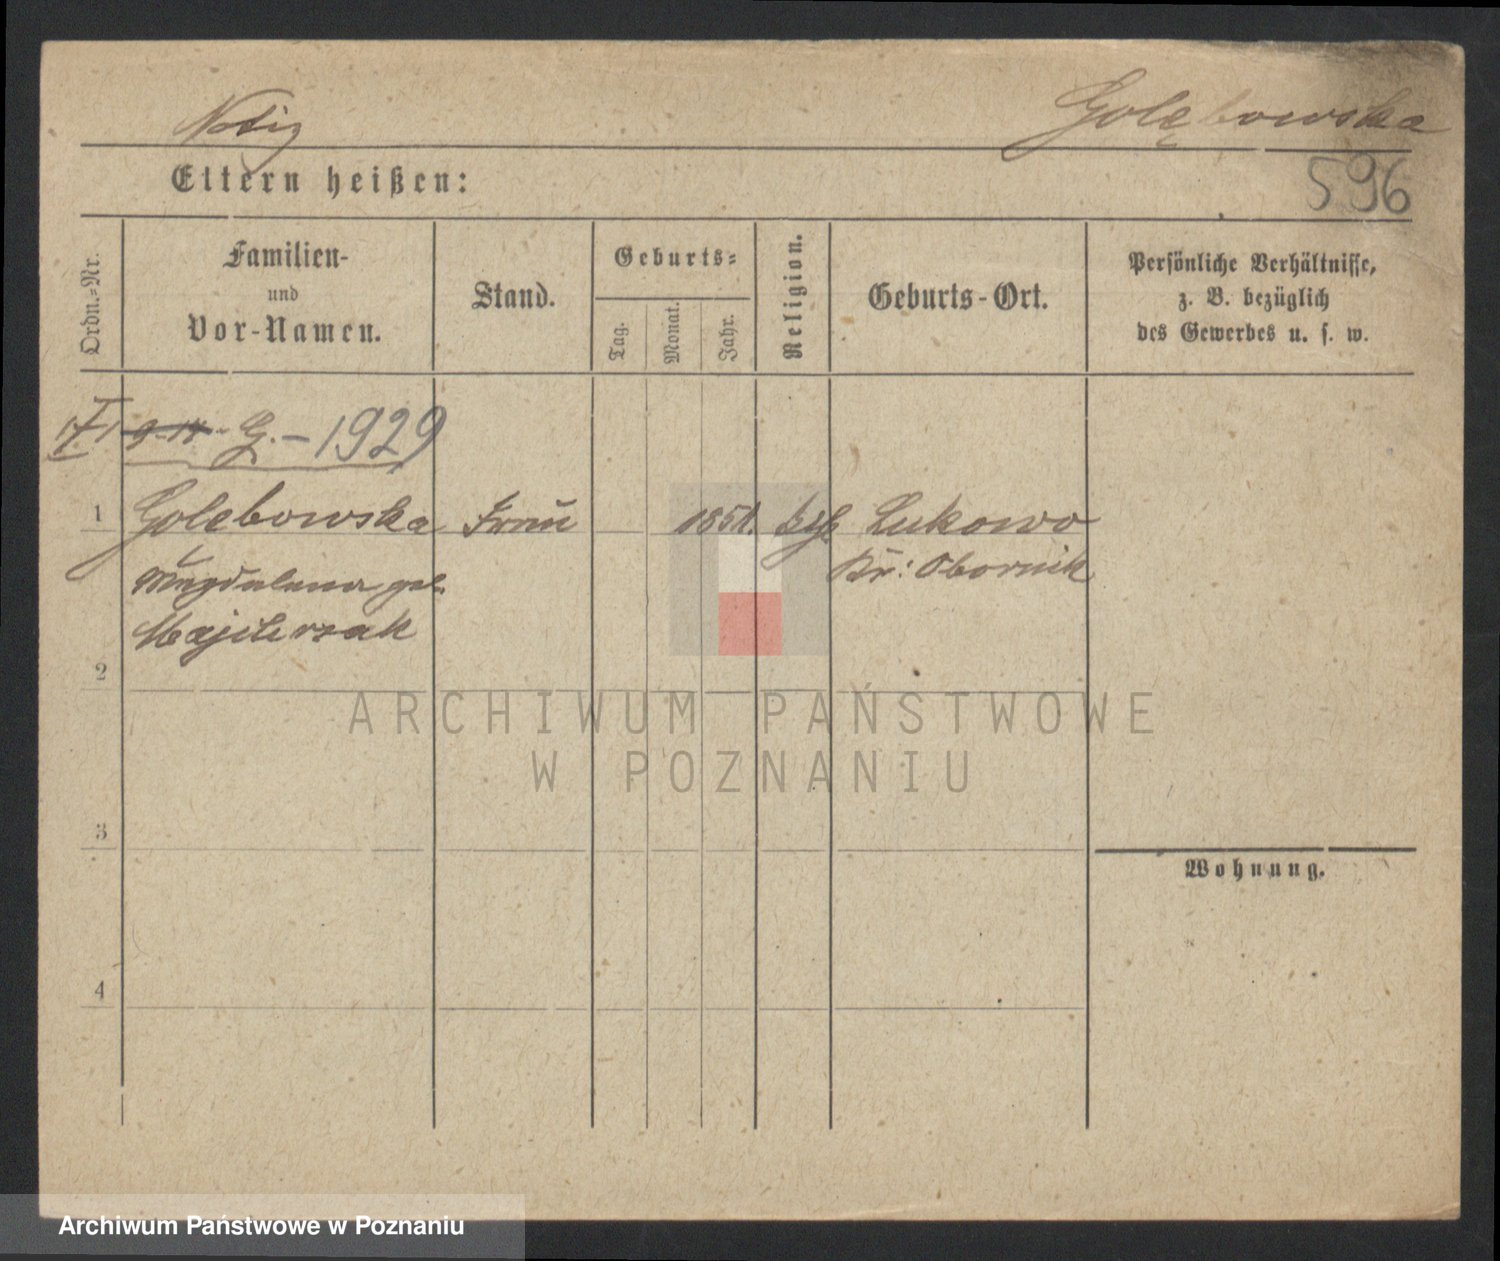 Notiz
Golębowska
Eltern heißen:
596
Ordn.-Nr.
Familien-
und
Vor-Namen.
Stand.
Geburts-
Tag.
Monat.
Jahr.
Religion.
Geburts-Ort.
Persönliche Verhältnisse,
z. B. bezüglich
des Gewerbes u. s. w.
G. - 1929
1 Golębowska Frau 1851. kth Lukowo
Magdalena geb. Kr: Obornik
2
3
Wohnung.
4
ARCHIWUM PAŃSTWOWE
W POZNANIU
Archiwum Państwowe w Poznaniu